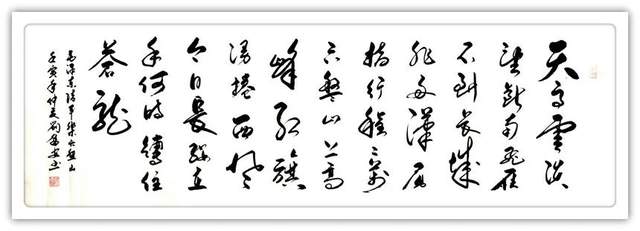 天高雲淡
望斷南飛雁
不到長城
非好漢屈
指行程二萬
六盤山上高
峰紅旗
漫捲西風
今日長纓在
手何時縛住
蒼龍
毛澤東清平樂六盤山
壬寅年仲夏劉安书